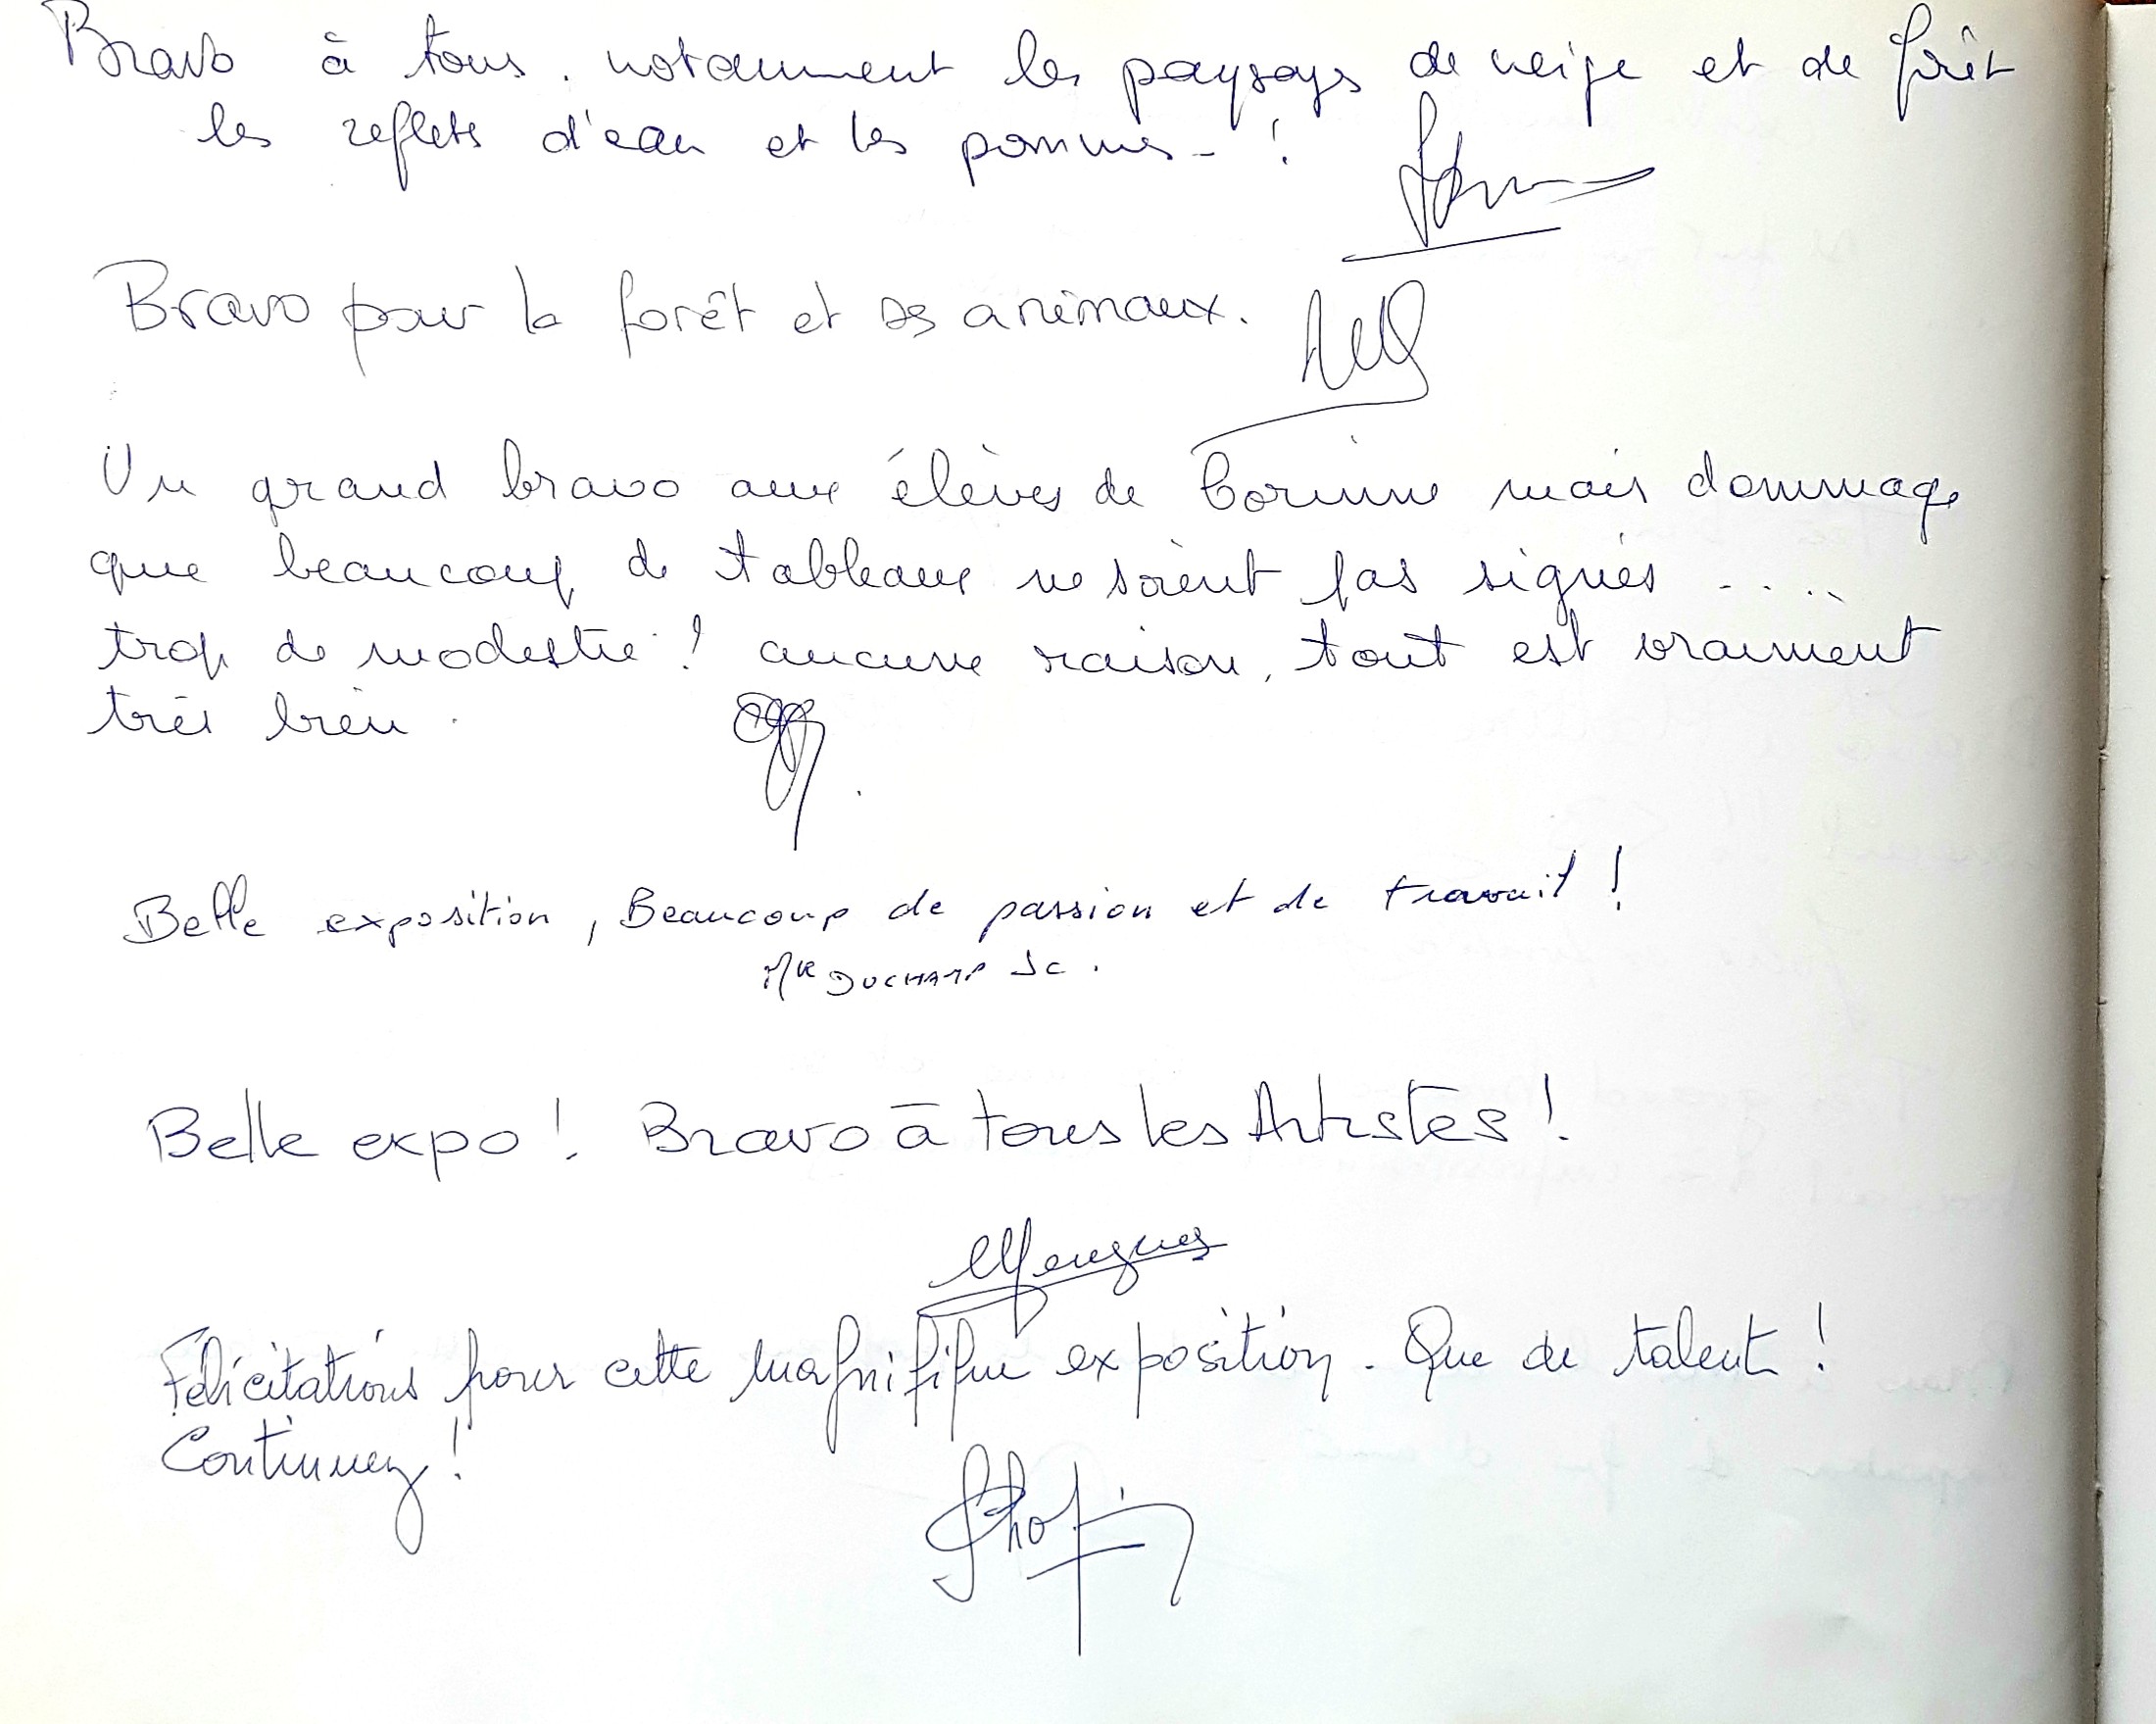 Bravo à tous. notamment les paysages de neige et de forêt
les reflets d'eau et les pommes - !
Bravo pour la forêt et ses animaux.
Un grand bravo aux élèves de Corinne mais dommage
que beaucoup de tableaux ne soient pas signés ....
trop de modestie ! aucune raison, tout est vraiment
très bien.
Belle exposition, Beaucoup de passion et de travail !
Mr DUCHAMP JC.
Belle expo ! Bravo à tous les Artistes !
Félicitations pour cette magnifique exposition. Que de talent !
Continuez !